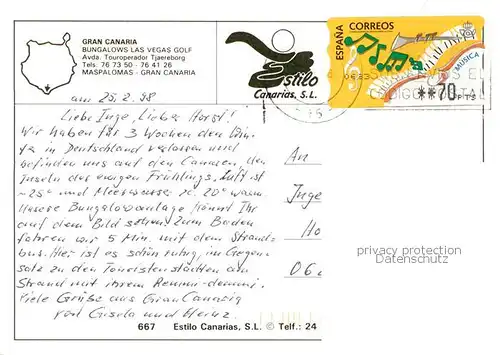 GRAN CANARIA
BUNGALOWS LAS VEGAS GOLF
Avda. Touroperador Tjaereborg
Tels. 76 73 50 - 76 41 26
MASPALOMAS - GRAN CANARIA
Estilo
Canarias, S.L.
ESPAÑA
CORREOS
MUSICA
**70 PTS
CODIGO POSTAL
am 25.2.98
Liebe Inge, Lieber Horst!
Wir haben für 3 Wochen den Win-
ter in Deutschland verlassen und
befinden uns auf den Canaren, den
Inseln des ewigen Frühlings. Luft ist
~25° und Meerwasser ca. 20° warm.
Unsere Bungalowanlage könnt Ihr
auf dem Bild sehen. Zum Baden
fahren wir 5 Min. mit dem Strand-
bus. Hier ist es schön ruhig, im Gegen-
satz zu den Touristenstädten am
Strand mit ihrem
Viele Grüße aus Gran Canaria
von Gisela und Heinz.
An
Inge
Ho
06
privacy protection
Datenschutz
667 Estilo Canarias, S.L. © Telf.: 24